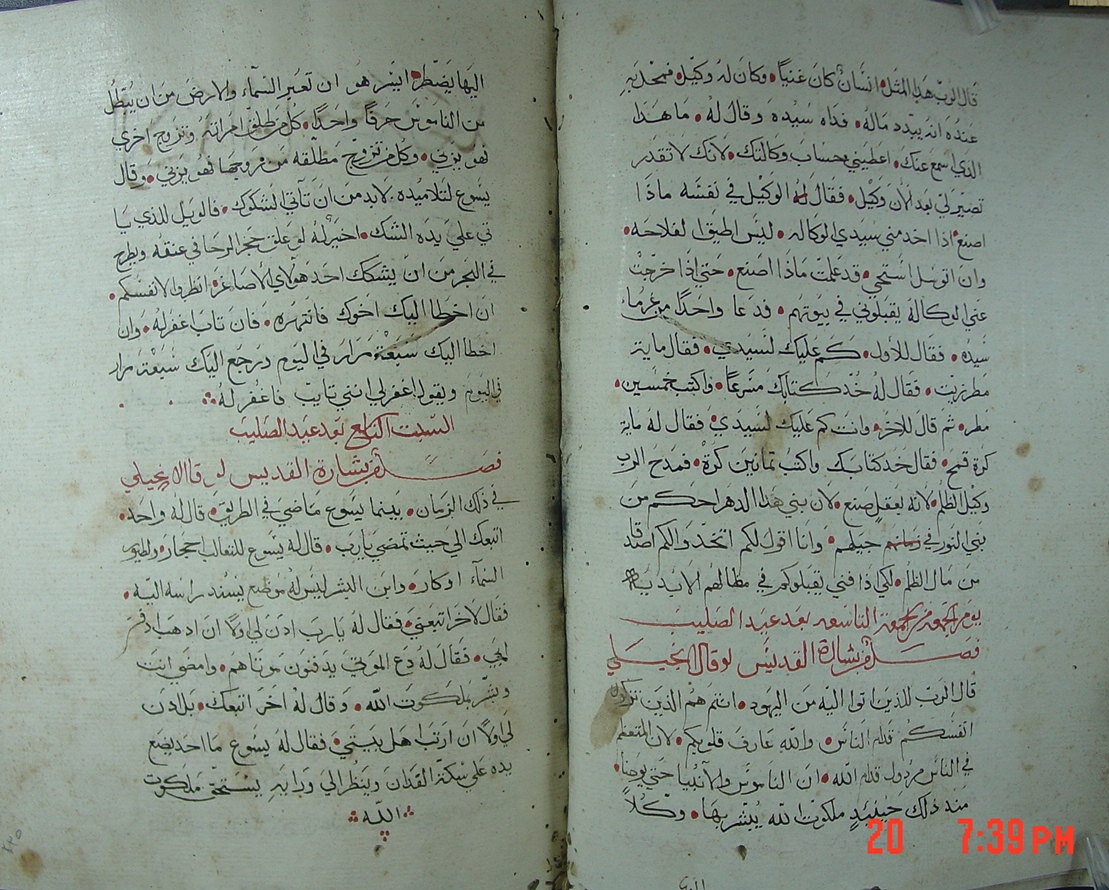 قال الرب هذا المثل انسان كان غنياً وكان له وكيل فمحد به
عنده انه يبدد ماله فدعاه سيده وقال له ما هذا
الذي اسمع عنك اعطيني حساب وكالتك لانك لا تقدر
تصير لي بعد الان وكيل فقال له الوكيل في نفسه ماذا
اصنع اذا اخد مني سيدي الوكاله ليس اطيق الفلاحه
وان اتوسل استحي قد علمت ماذا اصنع حتي اذا خرجت
عني الوكاله يقبلوني في بيوتهم فدعا واحداً من غرما
سيده فقال للاول كم عليك لسيدي فقال ماية
مطر زيت فقال له خد كتابك مسرعاً واكتب خمسين
مطر ثم قال للاخر وانت كم عليك لسيدي فقال له ماية
كرة قمح فقال خد كتابك واكتب ثمانين كرة فمدح الرب
وكيل الظلم لانه بعقل صنع لان بني هذا الدهر احكم من
بني النور في جيلهم وانا اقول لكم اتخدوا لكم اصدقا
من مال الظلم لكي اذا فني يقبلوكم في مظالهم الابديه
يوم الجمعه من الجمعة التاسعه بعد عيد الصليب
فصل من بشارة القديس لوقا الانجيلي
قال الرب للذين اتوا اليه من اليهود انتم هم الذين تزكون
انفسكم قدام الناس والله عارف قلوبكم لان المتعظم
في الناس مردول قدام الله ان الناموس والانبيا حتي يوحنا
منذ ذلك حينيدٍ ملكوت الله يبشر بها وكلاً
اليها يضطر ايسر هو ان تعبر السماء والارض من ان يبطل
من الناموس حرفاً واحداً كل من طلق امراته وتزوج اخري
فهو يزني وكل من تزوج مطلقه من زوجها فهو يزني وقال
يسوع لتلاميده لا بد من ان تاتي الشكوك فالويل للذي يا
تي علي يده الشك اخير له لو علق حجر الرحا في عنقه ويطرح
في البحر من ان يشكك احد هولاي الاصاغر انظروا لانفسكم
ان اخطا اليك اخوك فانتهره فان تاب اغفر له وان
اخطا اليك سبعة مرار في اليوم ورجع اليك سبعة مرار
في اليوم ويقول اغفر لي انني تايب فاغفر له
السبت التاسع بعد عيد الصليب
فصل من بشارة القديس لوقا الانجيلي
في ذلك الزمان بينما يسوع ماضي في الطريق قال له واحد
اتبعك الي حيث تمضي يا رب قال له يسوع للثعالب احجار ولطيور
السماء اوكار وابن البشر ليس له موضع يسند راسه اليه
فقال لاخر اتبعني فقال له يا رب ادن لي اولاً ان ادهب ادفن
ابي فقال له دع الموتي يدفنون موتاهم وامضي انت
وبشر بملكوت الله وقال له اخر اتبعك بل ادن
لي اولاً ان ارتب اهل بيتي فقال له يسوع ما احد يضع
يده علي سكة الفدان وينظر الي ورايه يستحق ملكوت
الله
20 7:39 PM